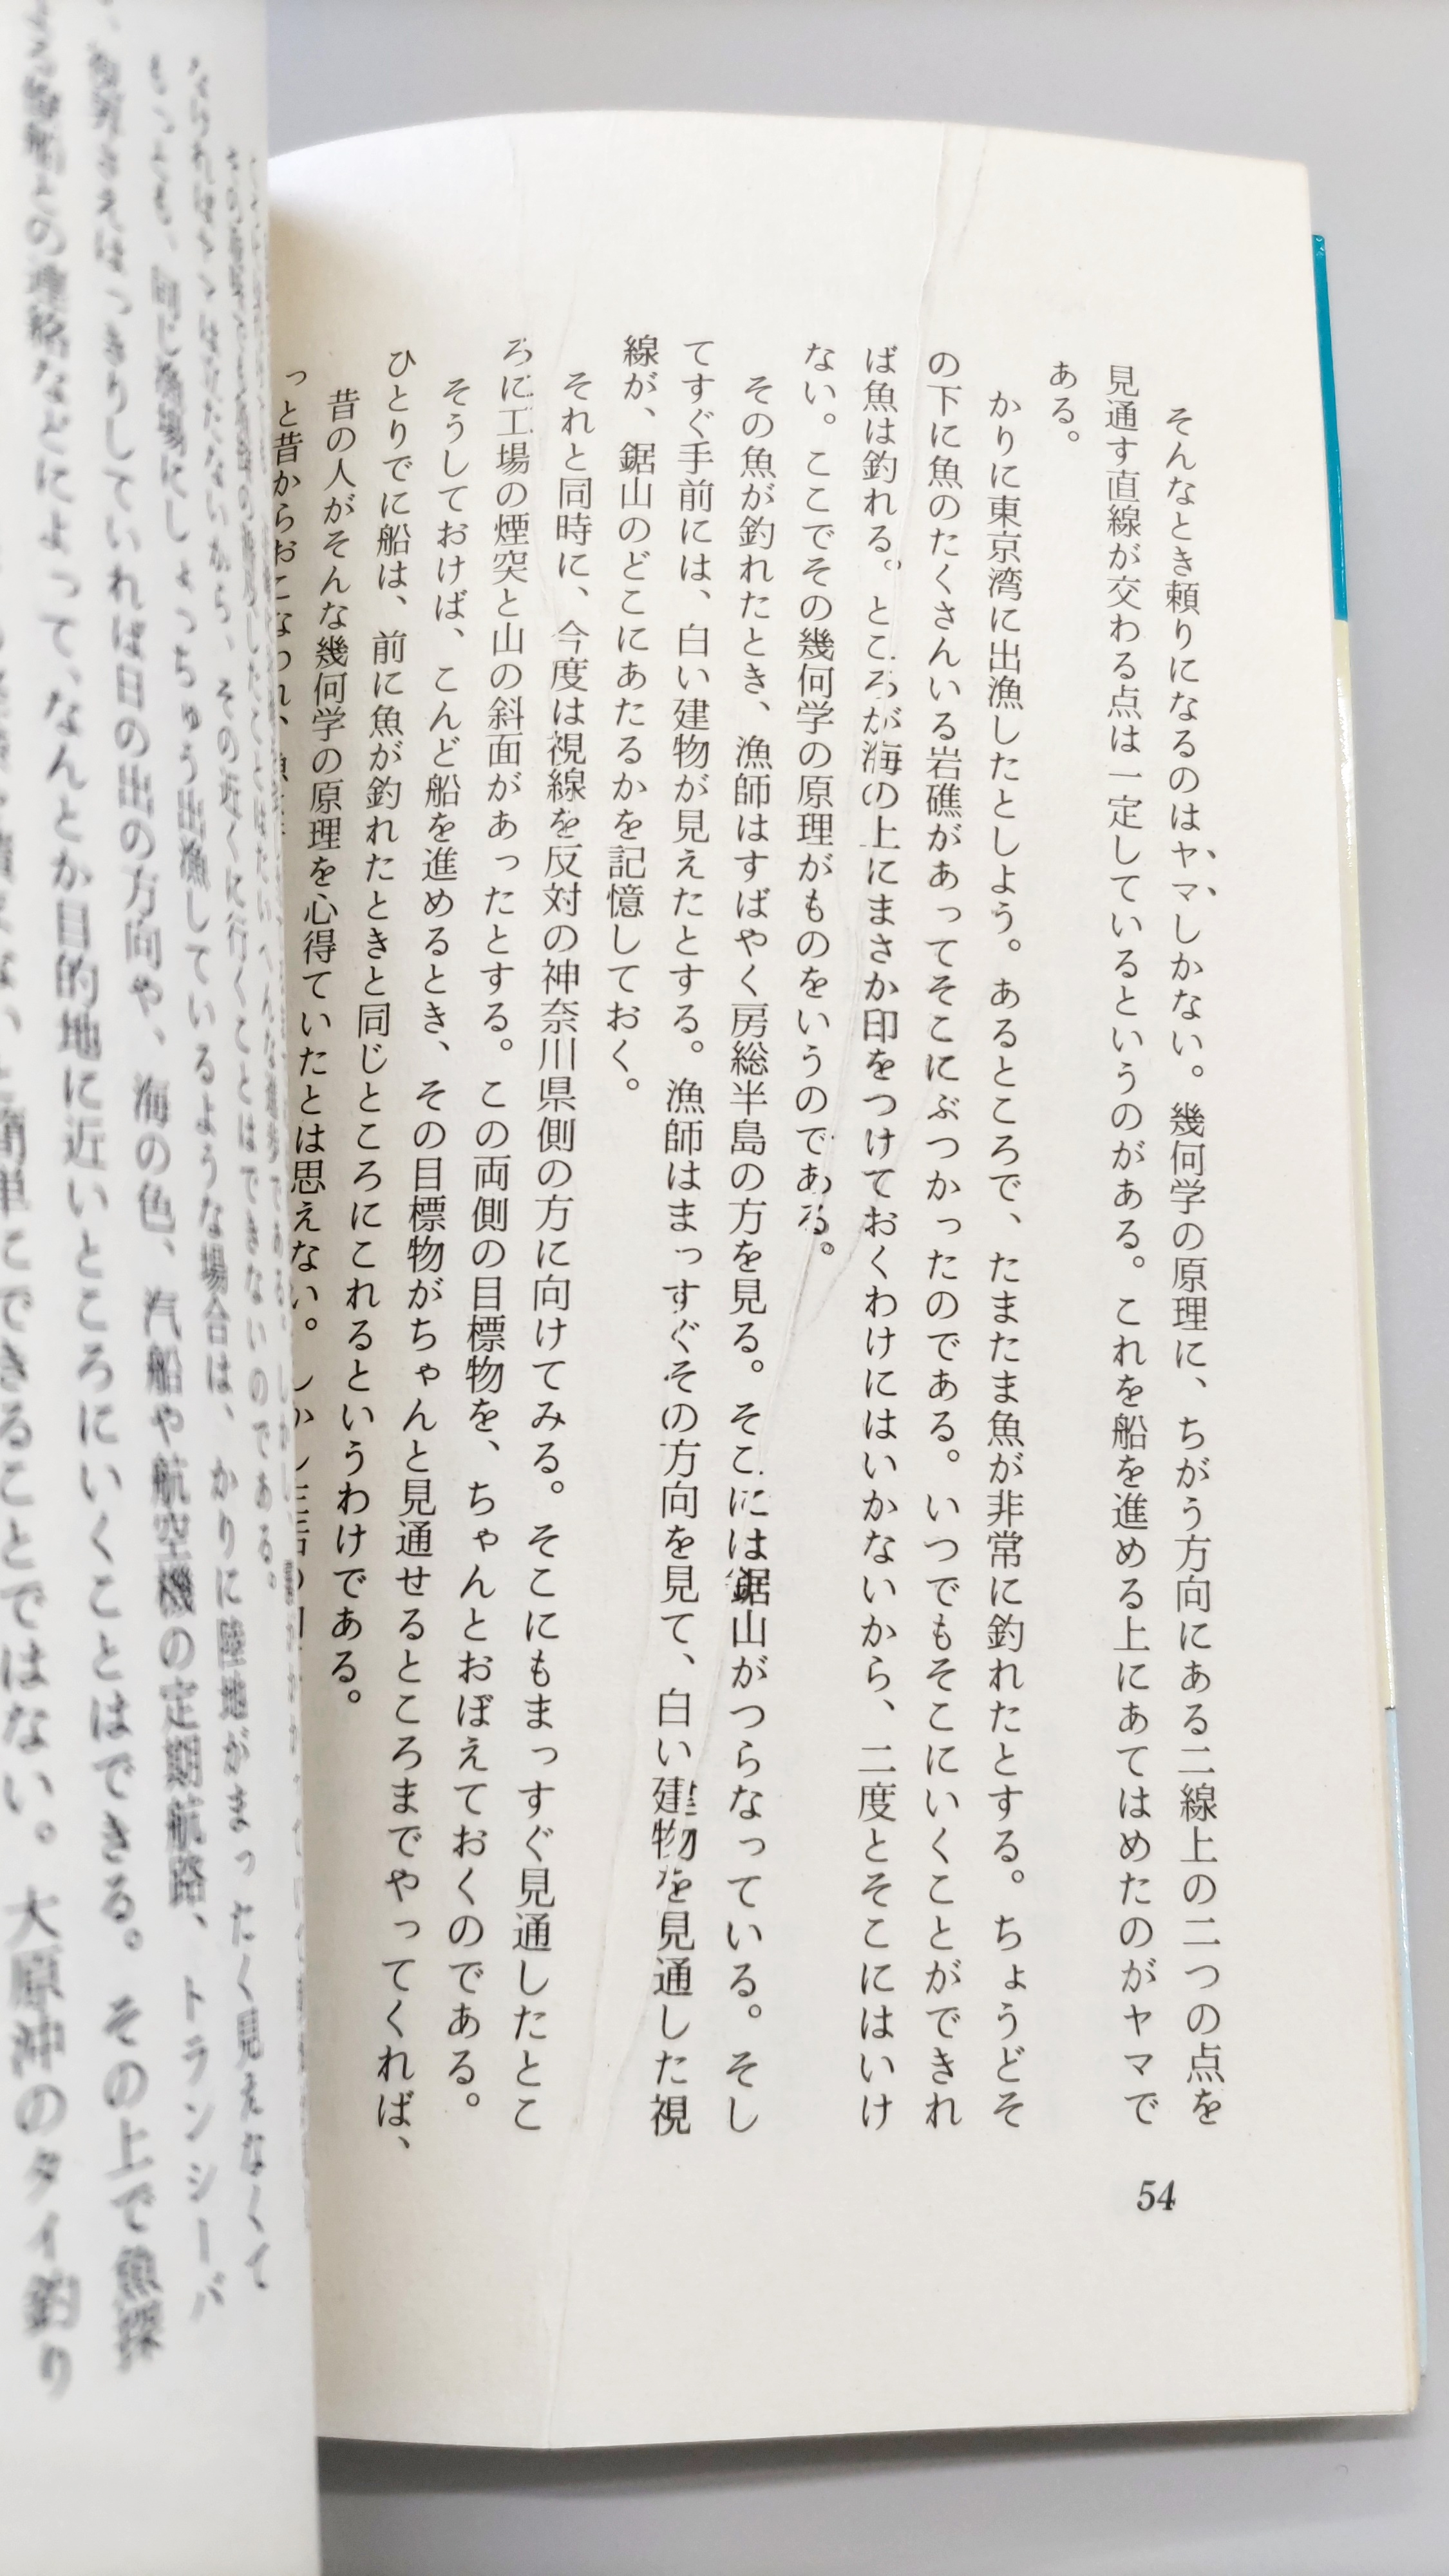 そんなとき頼りになるのはヤマしかない。幾何学の原理に、ちがう方向にある二線上の二つの点を
見通す直線が交わる点は一定しているというのがある。これを船を進める上にあてはめたのがヤマで
ある。
かりに東京湾に出漁したとしよう。あるところで、たまたま魚が非常に釣れたとする。ちょうどそ
の下に魚のたくさんいる岩礁があってそこにぶつかったのである。いつでもそこにいくことができれ
ば魚は釣れる。ところが海の上にまさか印をつけておくわけにはいかないから、二度とそこにはいけ
ない。ここでその幾何学の原理がものをいうのである。
その魚が釣れたとき、漁師はすばやく房総半島の方を見る。そこには鋸山がつらなっている。そし
てすぐ手前には、白い建物が見えたとする。漁師はまっすぐその方向を見て、白い建物を見通した視
線が、鋸山のどこにあたるかを記憶しておく。
それと同時に、今度は視線を反対の神奈川県側の方に向けてみる。そこにもまっすぐ見通したとこ
ろに工場の煙突と山の斜面があったとする。この両側の目標物を、ちゃんとおぼえておくのである。
そうしておけば、こんど船を進めるとき、その目標物がちゃんと見通せるところまでやってくれば、
ひとりでに船は、前に魚が釣れたときと同じところにこれるというわけである。
昔の人がそんな幾何学の原理を心得ていたとは思えない。しかし
っと昔からおこなわれ、
54
なければヤマは立たないから、その近くに行くことはできないのである。
もっとも、同じ漁場にしょっちゅう出漁しているような場合は、かりに陸地がまったく見えなくて
さえはっきりしていれば日の出の方向や、海の色、汽船や航空機の定期航路、トランシーバ
との連絡などによって、なんとか目的地に近いところにいくことはできる。その上で魚探
簡単にできることではない。大原沖のタイ釣り